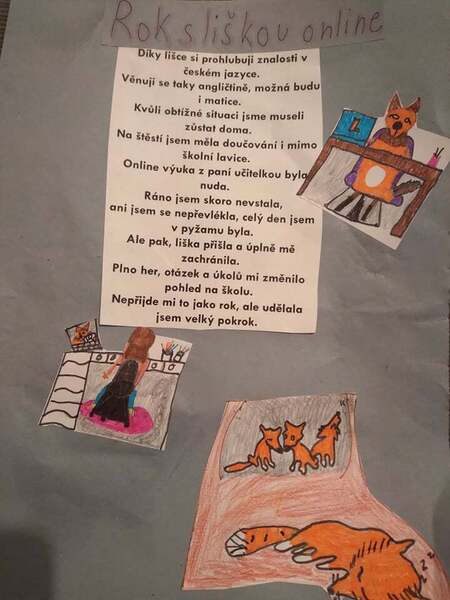 Rok s liškou online
Díky lišce si prohlubuji znalosti v
českém jazyce.
Věnuji se taky angličtině, možná budu
i matice.
Kvůli obtížné situaci jsme museli
zůstat doma.
Na štěstí jsem měla doučování i mimo
školní lavice.
Online výuka z paní učitelkou byla
nuda.
Ráno jsem skoro nevstala,
ani jsem se nepřevlékla, celý den jsem
v pyžamu byla.
Ale pak, liška přišla a úplně mě
zachránila.
Plno her, otázek a úkolů mi změnilo
pohled na školu.
Nepřijde mi to jako rok, ale udělala
jsem velký pokrok.